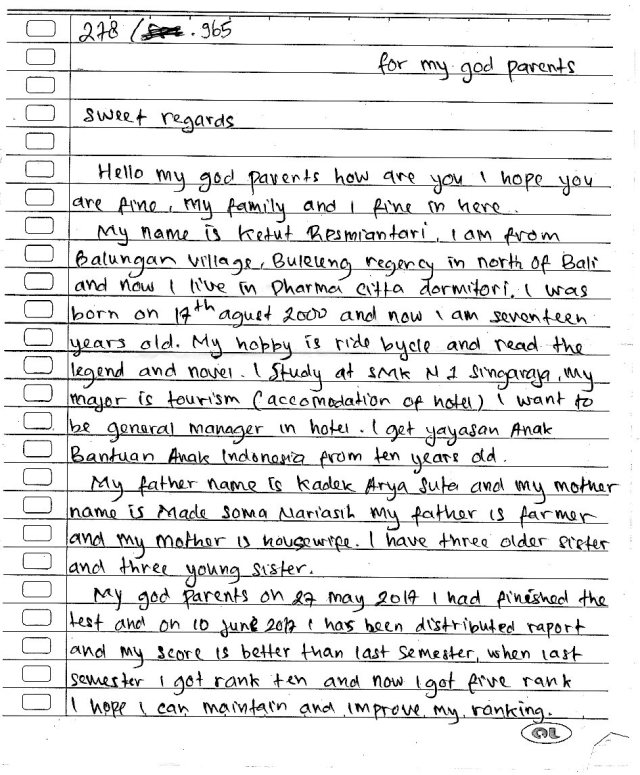 278 / . 965
for my god parents
sweet regards
Hello my god parents how are you I hope you
are fine, my family and I fine in here.
My name is Ketut Resmiantari, I am from
Balungan village, Buleleng regency in north of Bali
and now I live in Dharma citta dormitori. I was
born on 17th agust 2000 and now I am seventeen
years old. My hobby is ride bycle and read the
legend and novel. I study at SMK N 1 Singaraja, my
major is tourism (accomodation of hotel) I want to
be general manager in hotel. I get yayasan Anak
Bantuan Anak Indonesia from ten years old.
My father name is Kadek Arya Suta and my mother
name is Made Soma Nariasih my father is farmer
and my mother is housewife. I have three older sister
and three young sister.
My god parents on 27 may 2017 I had finished the
test and on 10 june 2017 I has been distributed raport
and my score is better than last semester, when last
semester I got rank ten and now I got five rank
I hope I can maintain and improve my ranking.
OL